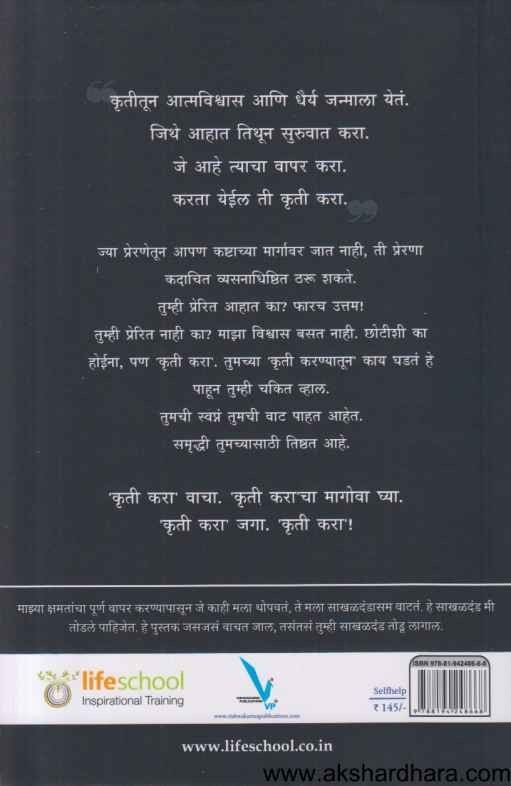 “कृतीतून आत्मविश्वास आणि धैर्य जन्माला येतं.
जिथे आहात तिथून सुरुवात करा.
जे आहे त्याचा वापर करा.
करता येईल ती कृती करा.”
ज्या प्रेरणेतून आपण कष्टाच्या मार्गावर जात नाही, ती प्रेरणा
कदाचित व्यसनाधिष्ठित ठरू शकते.
तुम्ही प्रेरित आहात का? फारच उत्तम!
तुम्ही प्रेरित नाही का? माझा विश्वास बसत नाही. छोटीशी का
होईना, पण 'कृती करा'. तुमच्या 'कृती करण्यातून' काय घडतं हे
पाहून तुम्ही चकित व्हाल.
तुमची स्वप्नं तुमची वाट पाहत आहेत.
समृद्धी तुमच्यासाठी तिष्ठत आहे.
'कृती करा' वाचा. 'कृती करा'चा मागोवा घ्या.
'कृती करा' जगा. 'कृती करा'!
माझ्या क्षमतांचा पूर्ण वापर करण्यापासून जे काही मला थोपवतं, ते मला साखळदंडासम वाटतं. हे साखळदंड मी
तोडले पाहिजेत. हे पुस्तक जसजसं वाचत जाल, तसंतसं तुम्ही साखळदंड तोडू लागाल.
lifeschool
Inspirational Training
VP
www.vishwakarmapublications.com
Selfhelp
₹ 145/-
ISBN 978-81-942486-6-8
9 788194 248668
www.lifeschool.co.in
www.akshardhara.com